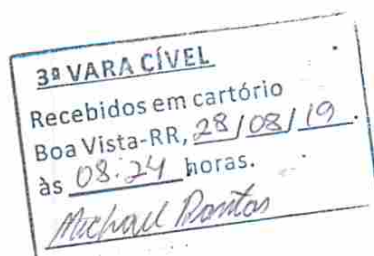 3ª VARA CÍVEL
Recebidos em cartório
Boa Vista-RR, 28/08/19.
às 08:24 horas.
Michael